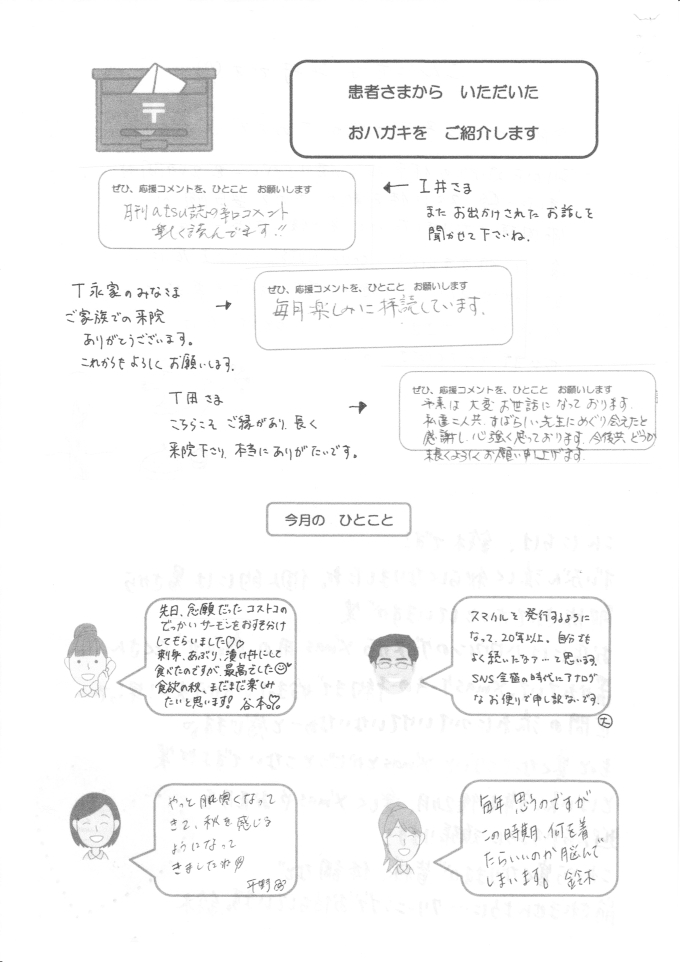 患者さまから いただいた
おハガキを ご紹介します
ぜひ、応援コメントを、ひとこと お願いします
月刊atsu誌の コメント
楽しく読んでます!!
← I井さま
また お出かけされた お話しを
聞かせて下さいね。
T永家のみなさま →
ご家族での来院
ありがとうございます。
これからも よろしく お願いします。
ぜひ、応援コメントを、ひとこと お願いします
毎月楽しみに拝読しています。
T田さま
こちらこそ ご縁があり、長く →
来院下さり、本当に ありがたいです。
ぜひ、応援コメントを、ひとこと お願いします
平素は 大変 お世話になっております。
私達二人共、すばらしい先生にめぐり会えたと
感謝し、心強く思っております。今後共、どうか
末長くよろしくお願い申し上げます。
今月の ひとこと
先日、念願だった コストコの
でっかい サーモンをおすそ分け
してもらいました♡♡
刺身、あぶり、漬け丼にして
食べたのですが、最高でした
食欲の秋、まだまだ楽しみ
たいと思います! 谷本
スマイルを 発行するように
なって、20年以上。自分でも
よく続いたなァ…と思います。
SNS全盛の時代にアナログ
な お便りで申し訳ないです。
やっと 肌寒くなって
きて、秋を感じる
ようになって
きましたね
平野
毎年 思うのですが
この時期、何を着
たらいいのか 悩んで
しまいます。 鈴木